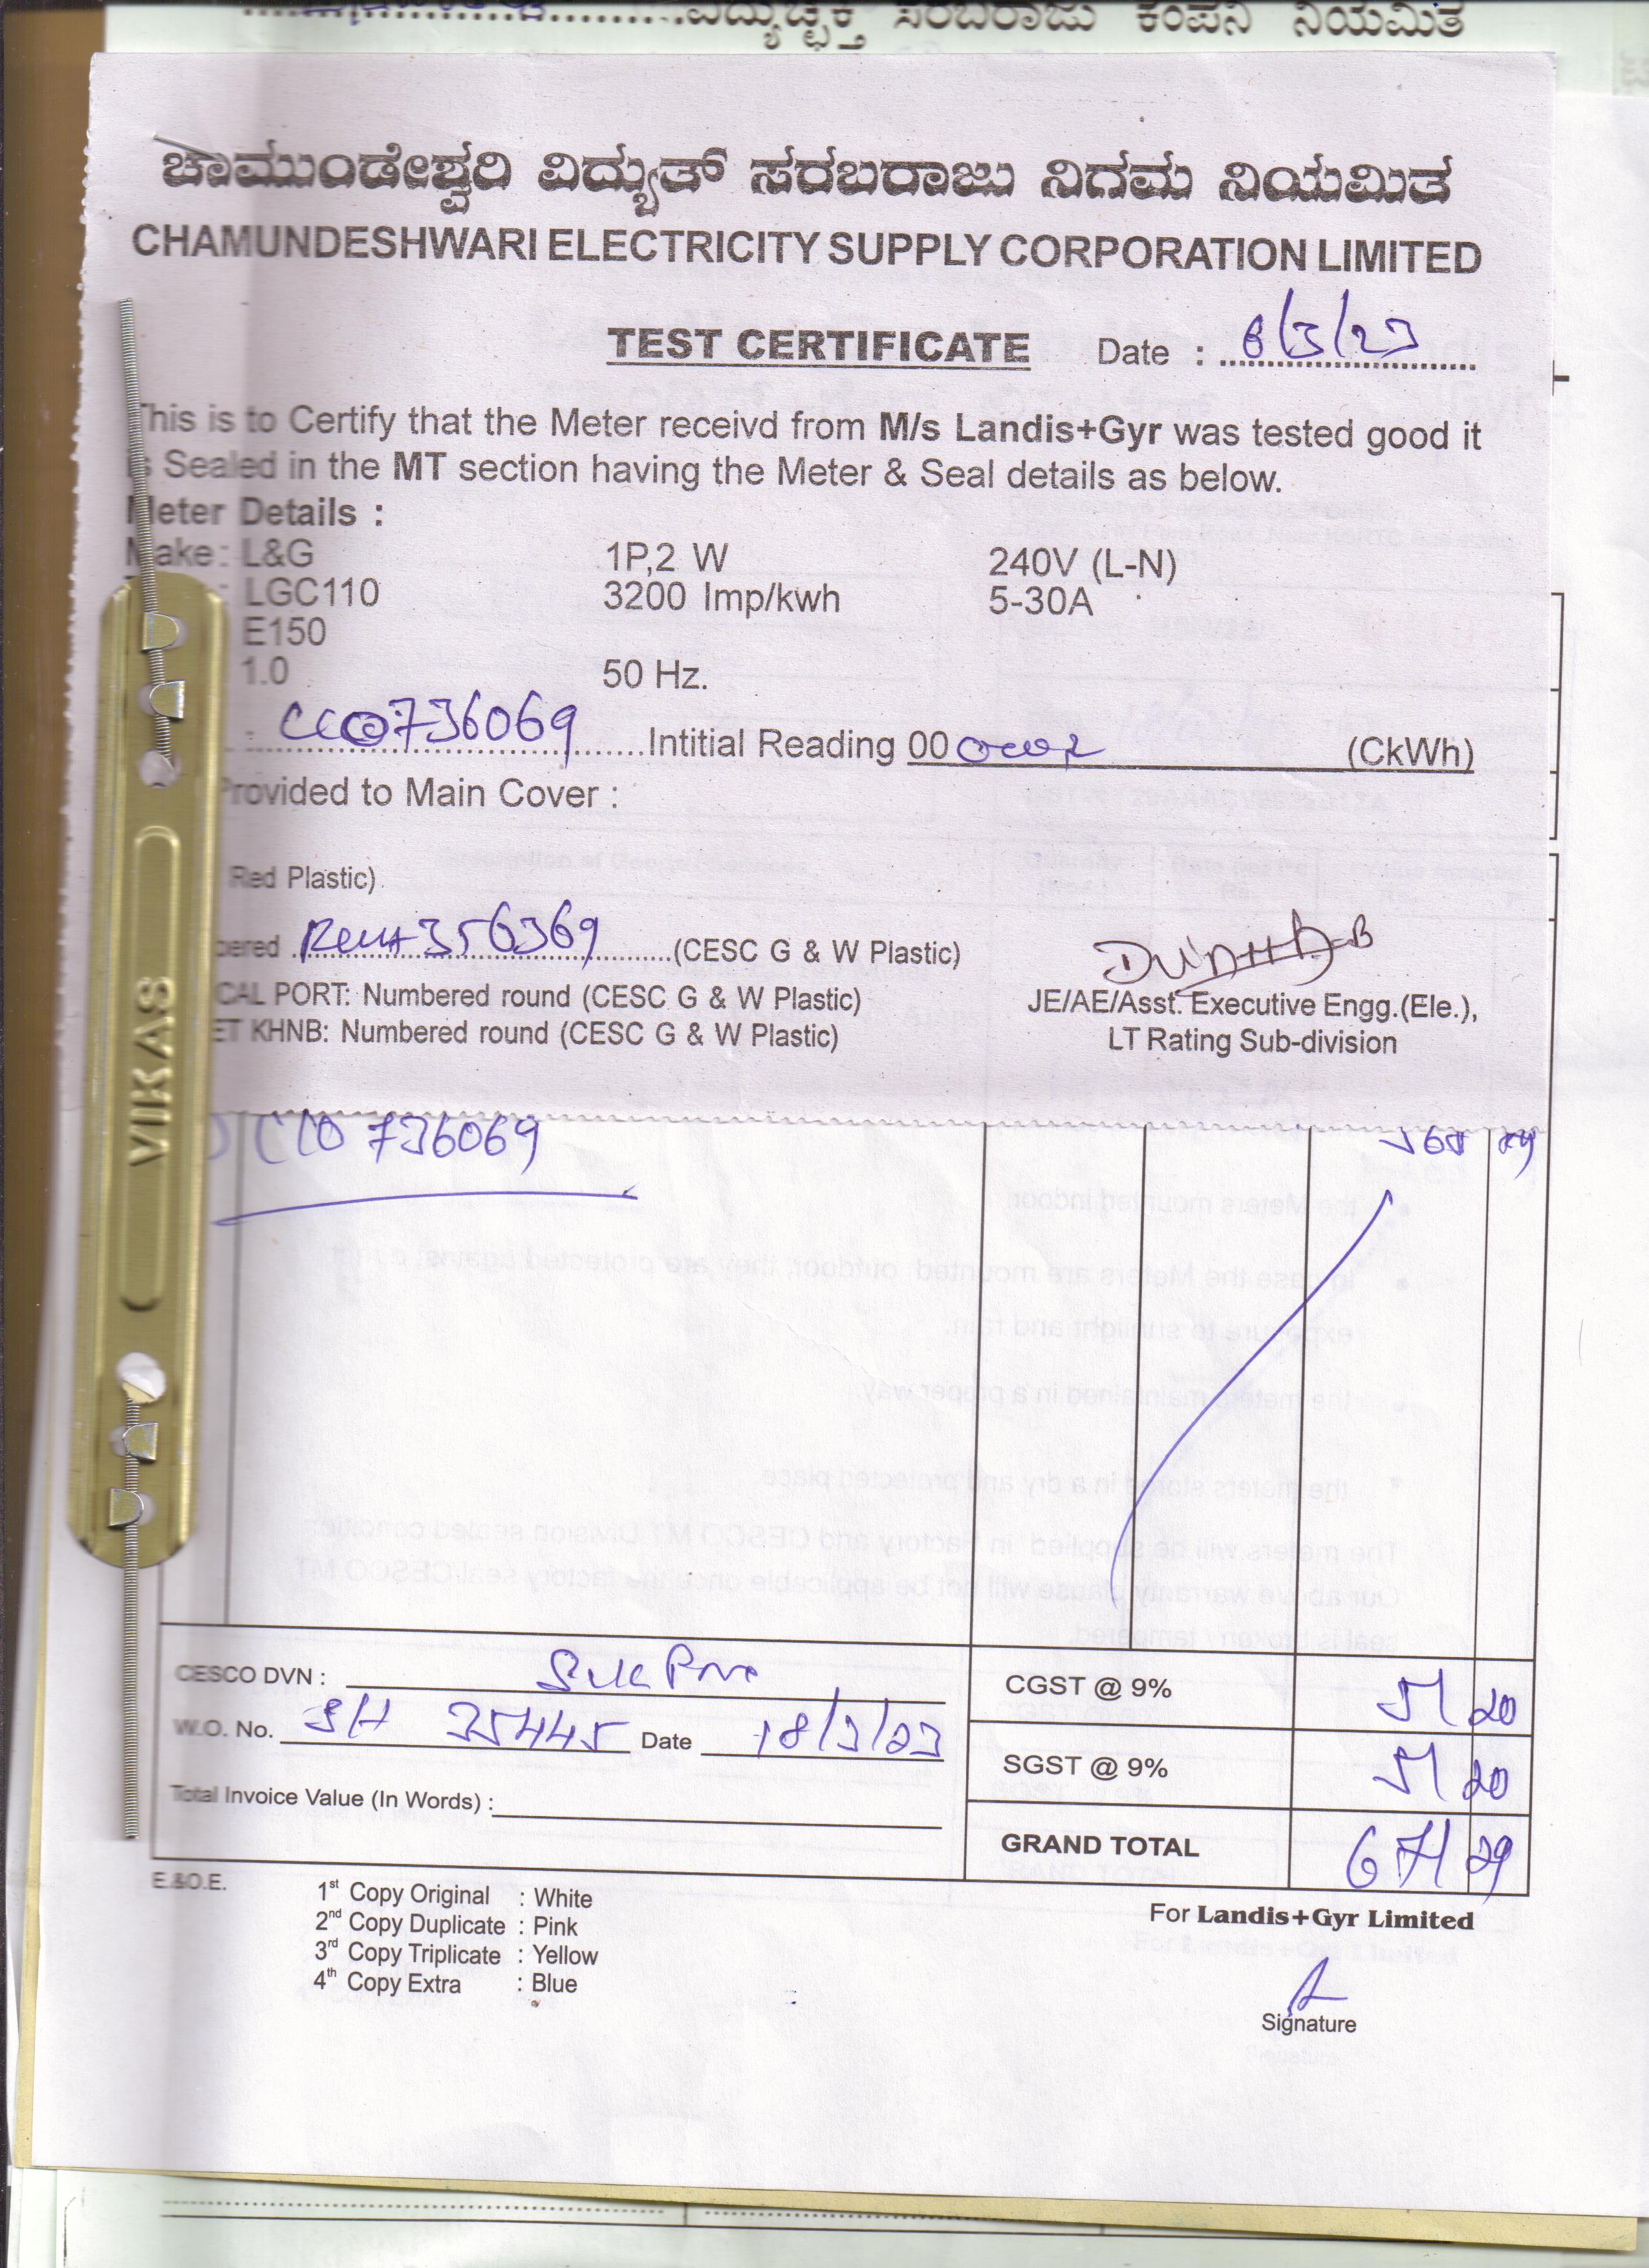 ವಿದ್ಯುಚ್ಛಕ್ತಿ ಸರಬರಾಜು ಕಂಪನಿ ನಿಯಮಿತ
ಚಾಮುಂಡೇಶ್ವರಿ ವಿದ್ಯುತ್ ಸರಬರಾಜು ನಿಗಮ ನಿಯಮಿತ
CHAMUNDESHWARI ELECTRICITY SUPPLY CORPORATION LIMITED
TEST CERTIFICATE Date : 8/3/23
This is to Certify that the Meter receivd from M/s Landis+Gyr was tested good it
is Sealed in the MT section having the Meter & Seal details as below.
Meter Details :
Make : L&G 1P,2 W 240V (L-N)
: LGC110 3200 Imp/kwh 5-30A
E150
1.0 50 Hz.
CC0736069 Intitial Reading 00 (CkWh)
Provided to Main Cover :
Red Plastic)
356369 (CESC G & W Plastic)
CAL PORT: Numbered round (CESC G & W Plastic) JE/AE/Asst. Executive Engg.(Ele.),
ET KHNB: Numbered round (CESC G & W Plastic) LT Rating Sub-division
VIKAS
CC0736069
CESCO DVN : CGST @ 9% 51 20
W.O. No. 35445 Date 18/3/23
SGST @ 9% 51 20
Total Invoice Value (In Words) :
GRAND TOTAL 671 29
E.&O.E.
1st Copy Original : White
2nd Copy Duplicate : Pink
3rd Copy Triplicate : Yellow
4th Copy Extra : Blue
For Landis+Gyr Limited
Signature